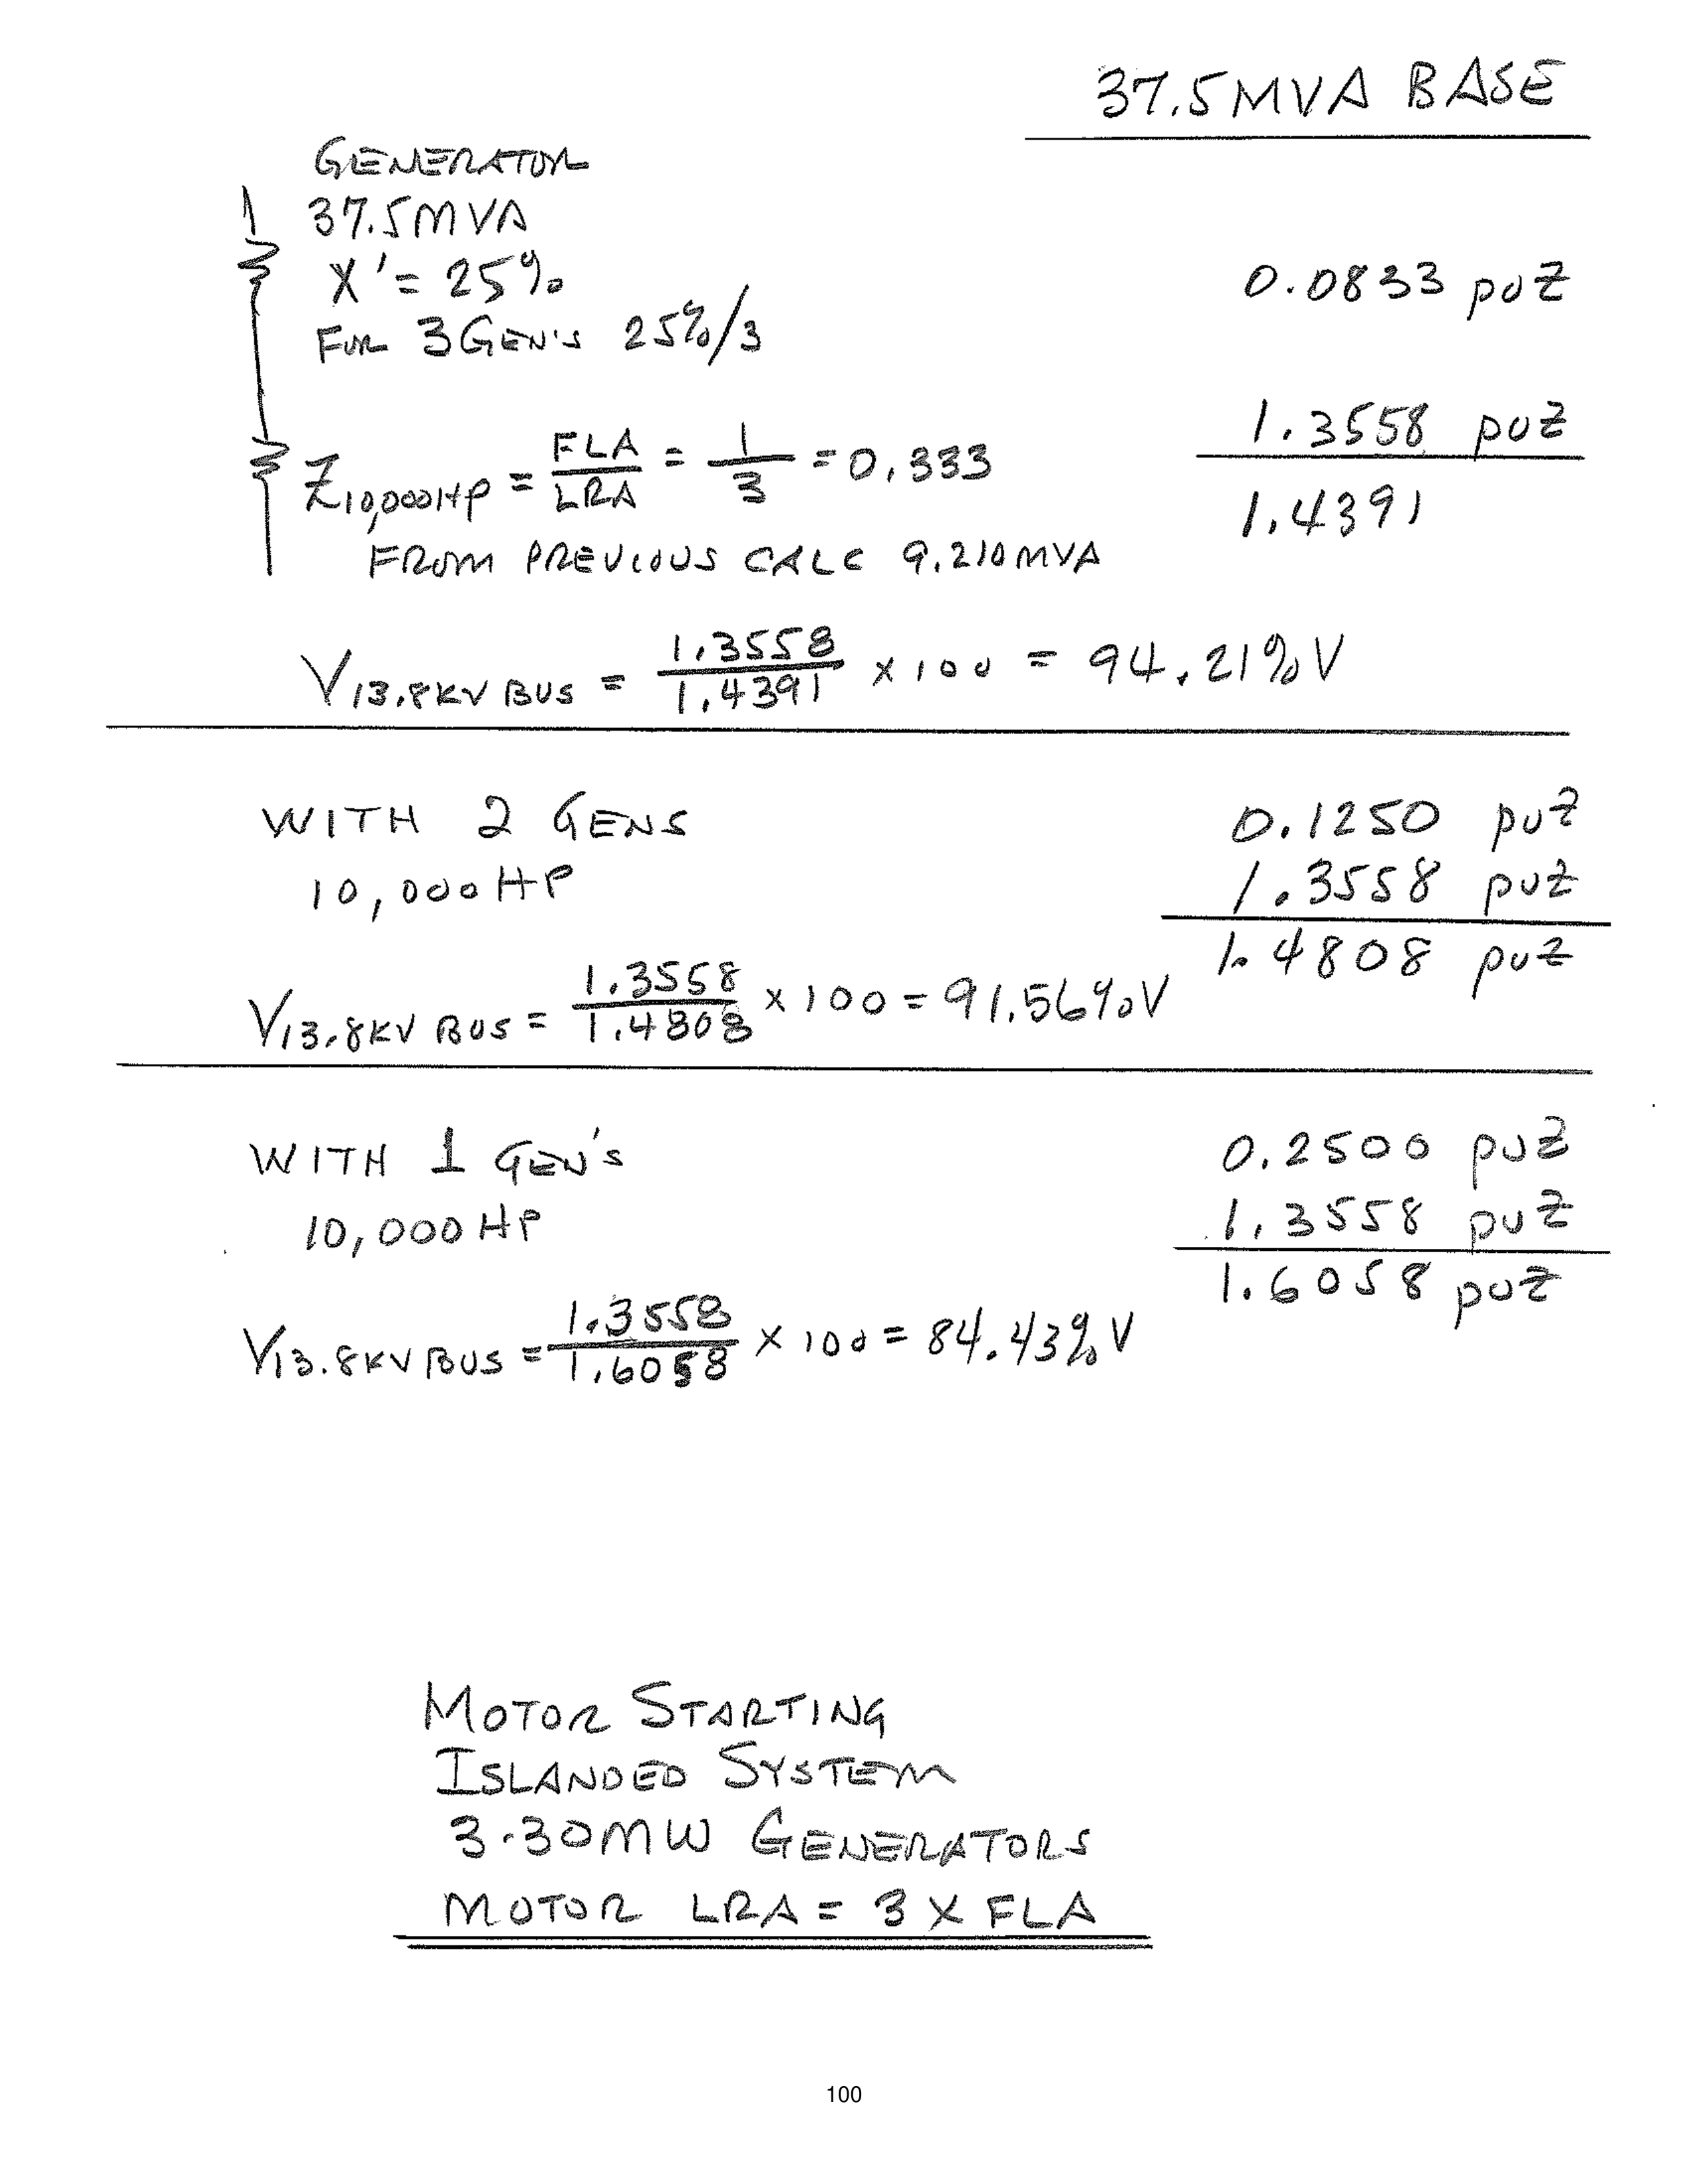 37.5MVA BASE
GENERATOR
37.5MVA
X' = 25%
0.0833 puZ
FOR 3 GEN'S 25%/3
1.3558 puZ
Z10,000HP = FLA/LRA = 1/3 = 0.333
1.4391
FROM PREVIOUS CALC 9.210MVA
V13.8KV BUS = 1.3558/1.4391 x 100 = 94.21%V
WITH 2 GENS
0.1250 puZ
10,000HP
1.3558 puZ
1.4808 puZ
V13.8KV BUS = 1.3558/1.4808 x 100 = 91.56%V
WITH 1 GEN'S
0.2500 puZ
10,000HP
1.3558 puZ
1.6058 puZ
V13.8KV BUS = 1.3558/1.6058 x 100 = 84.43%V
MOTOR STARTING
ISLANDED SYSTEM
3·30MW GENERATORS
MOTOR LRA = 3 X FLA
100